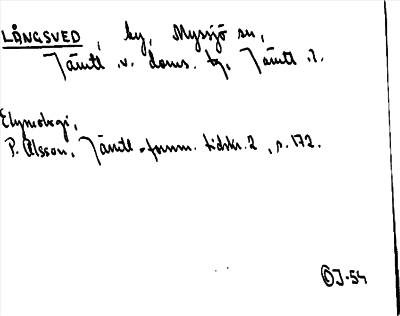 LÅNGSVED, by, Myssjö sn,
Jämtl. v. doms. tg, Jämtl. l.
Etymologi,
P. Olsson, Jämtl. fornm. tidskr. 2, s. 172.
OJ-54